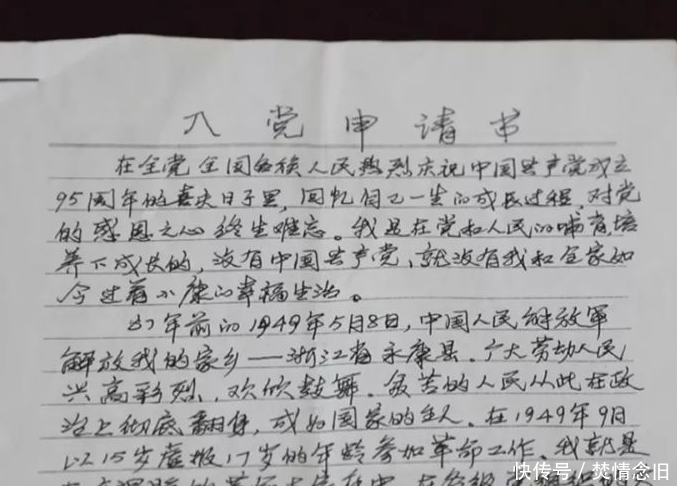 入党申请书
在全党全国各族人民热烈庆祝中国共产党成立
95周年的喜庆日子里，回忆自己一生的成长过程，对党
的感恩之心终生难忘。我是在党和人民的哺育培
养下成长的，没有中国共产党，就没有我和全家如
今过着小康的幸福生活。
67年前的1949年5月8日，中国人民解放軍
解放我的家乡——浙江省永康县。广大劳动人民
兴高彩烈，欢欣鼓舞。受苦的人民从此在政
治上彻底翻身，成为国家的主人。在1949年9月
以15岁虚报17岁的年龄参加革命工作。我就是
快传号／焚情念旧